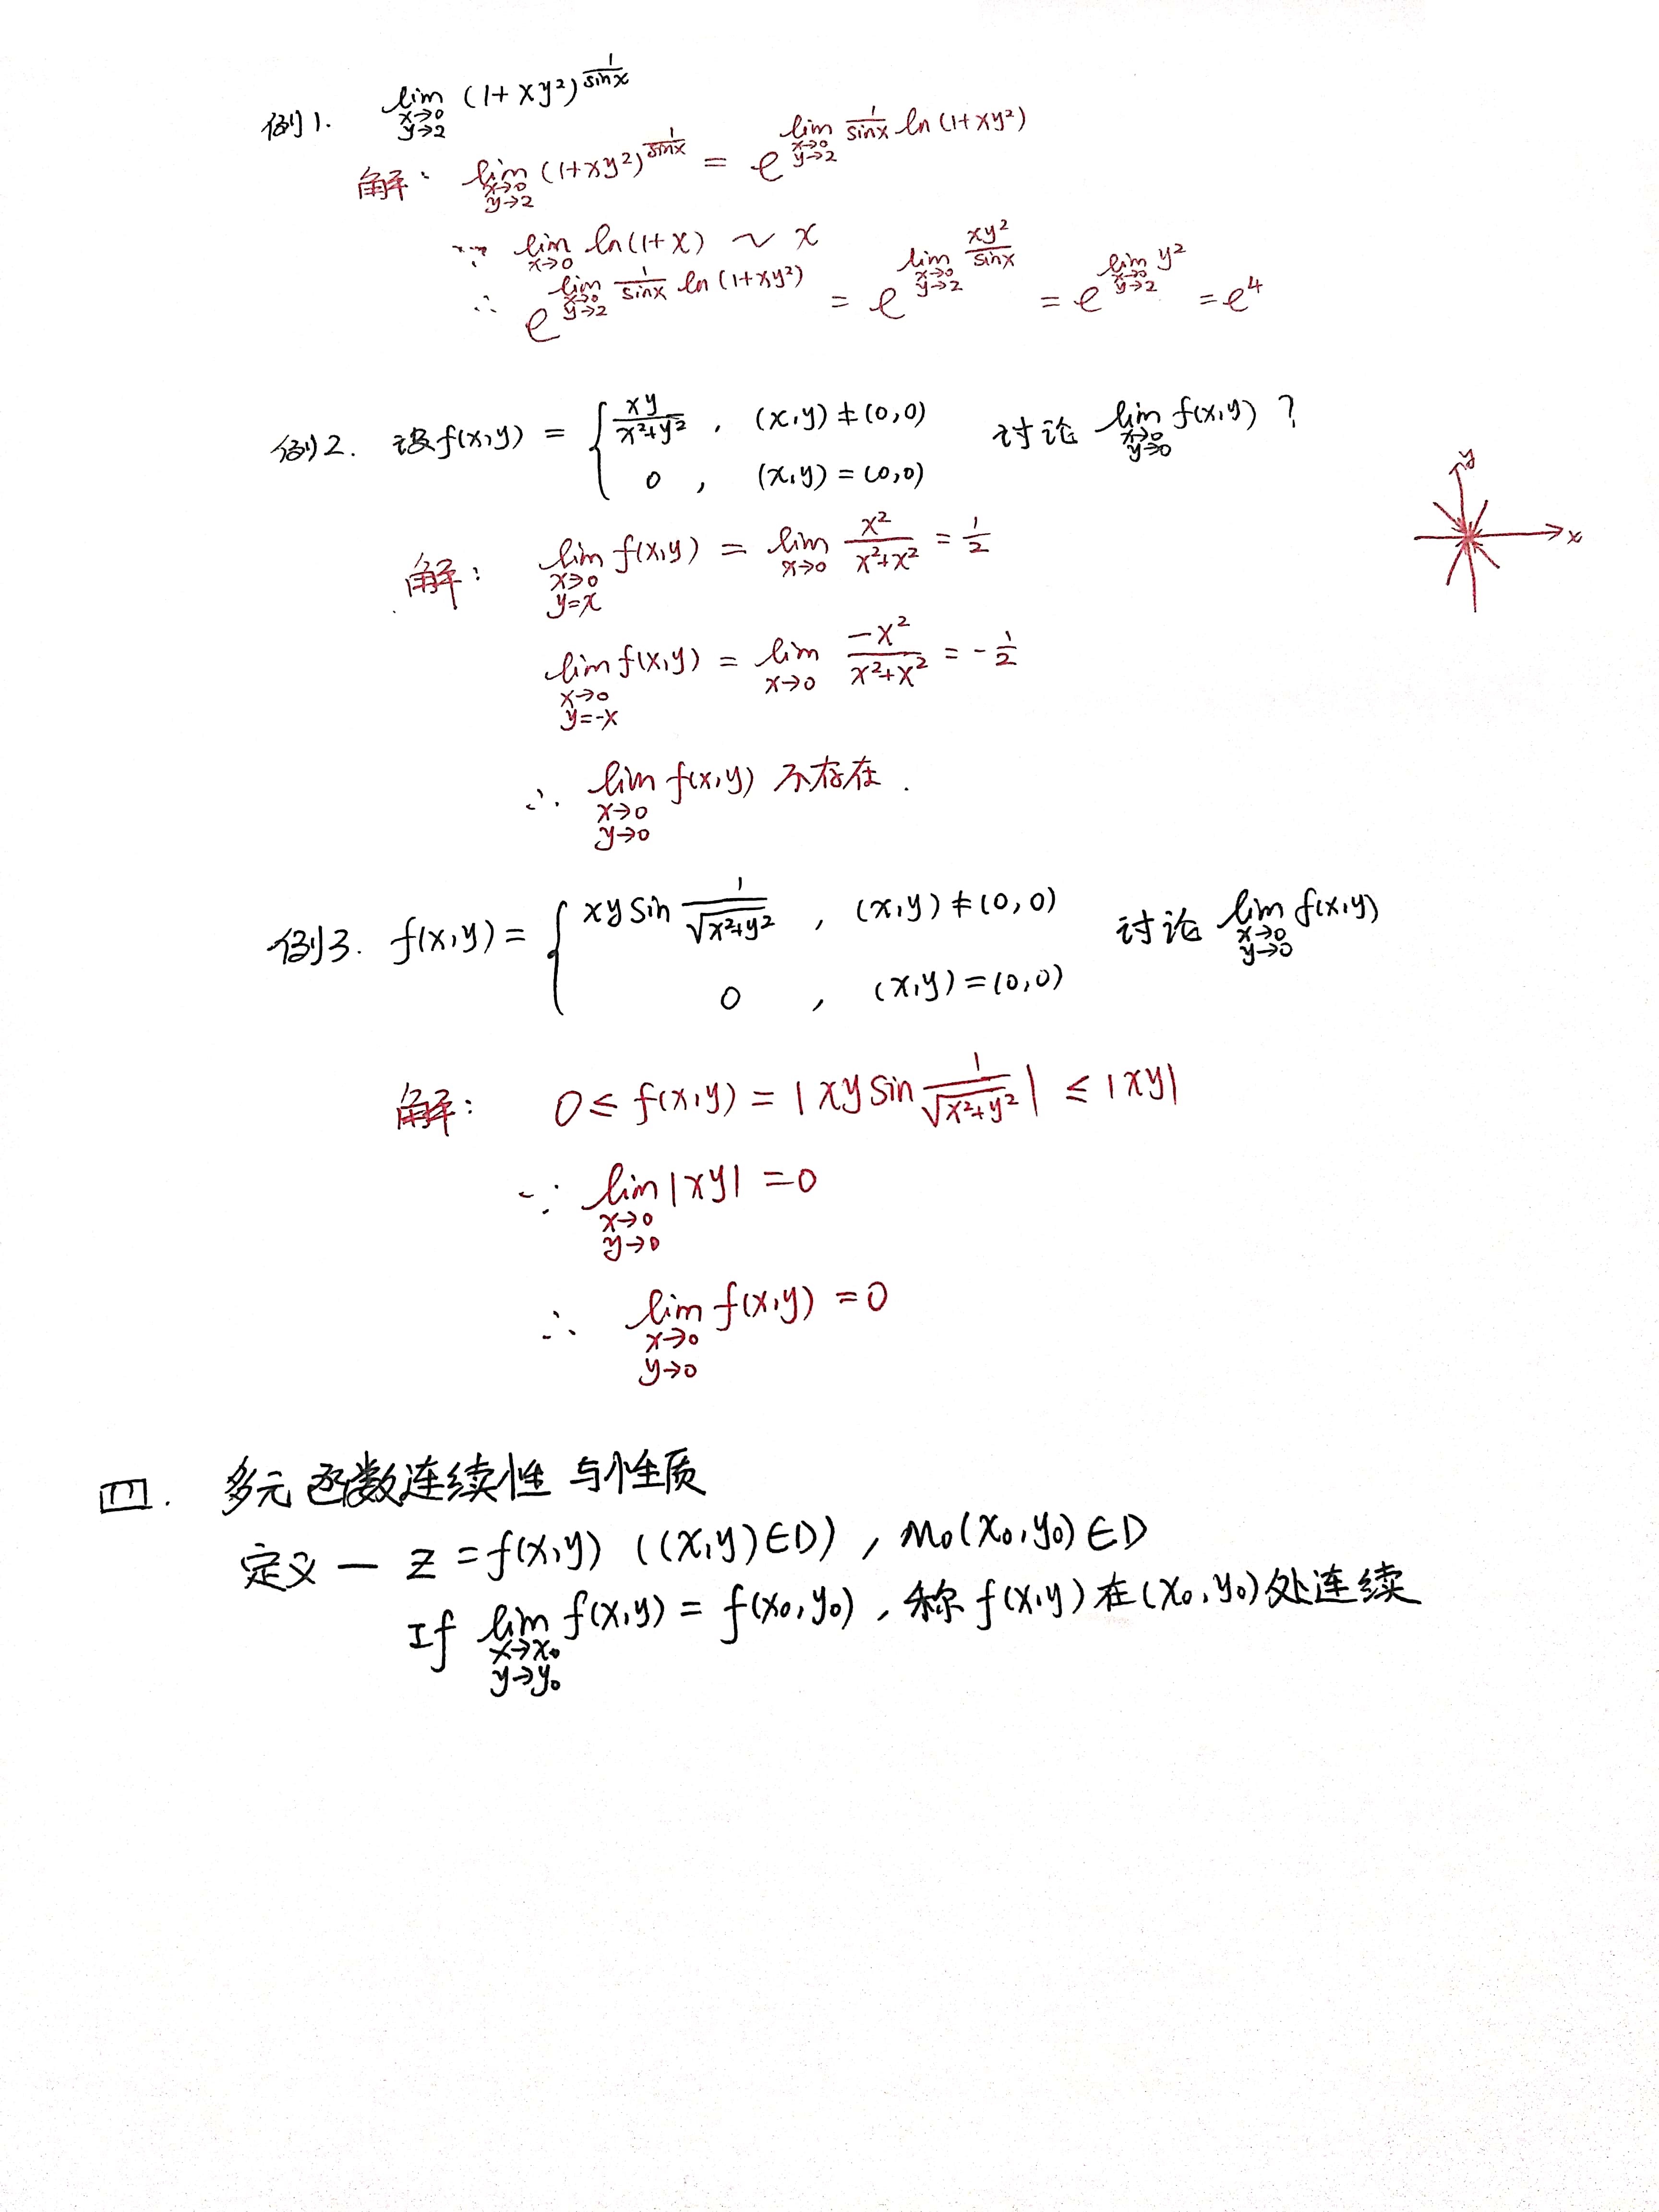 例1. lim_{x→0, y→2} (1+xy²)^{1/sinx}
解: lim_{x→0, y→2} (1+xy²)^{1/sinx} = e^{lim_{x→0, y→2} 1/sinx ln(1+xy²)}
∵ lim_{x→0} ln(1+x) ~ x
∴ e^{lim_{x→0, y→2} 1/sinx ln(1+xy²)} = e^{lim_{x→0, y→2} xy²/sinx} = e^{lim_{x→0, y→2} y²} = e⁴
例2. 设f(x,y) = { xy/(x²+y²), (x,y)≠(0,0) 讨论 lim_{x→0, y→0} f(x,y) ?
0, (x,y)=(0,0)
y
x
解: lim_{x→0, y=x} f(x,y) = lim_{x→0} x²/(x²+x²) = 1/2
lim_{x→0, y=-x} f(x,y) = lim_{x→0} -x²/(x²+x²) = -1/2
∴ lim_{x→0, y→0} f(x,y) 不存在.
例3. f(x,y) = { xy sin 1/√(x²+y²), (x,y)≠(0,0) 讨论 lim_{x→0, y→0} f(x,y)
0, (x,y)=(0,0)
解: 0 ≤ f(x,y) = |xy sin 1/√(x²+y²)| ≤ |xy|
∵ lim_{x→0, y→0} |xy| = 0
∴ lim_{x→0, y→0} f(x,y) = 0
四. 多元函数连续性与性质
定义一 z=f(x,y) ((x,y)∈D), M₀(x₀,y₀)∈D
If lim_{x→x₀, y→y₀} f(x,y) = f(x₀,y₀), 称f(x,y)在(x₀,y₀)处连续